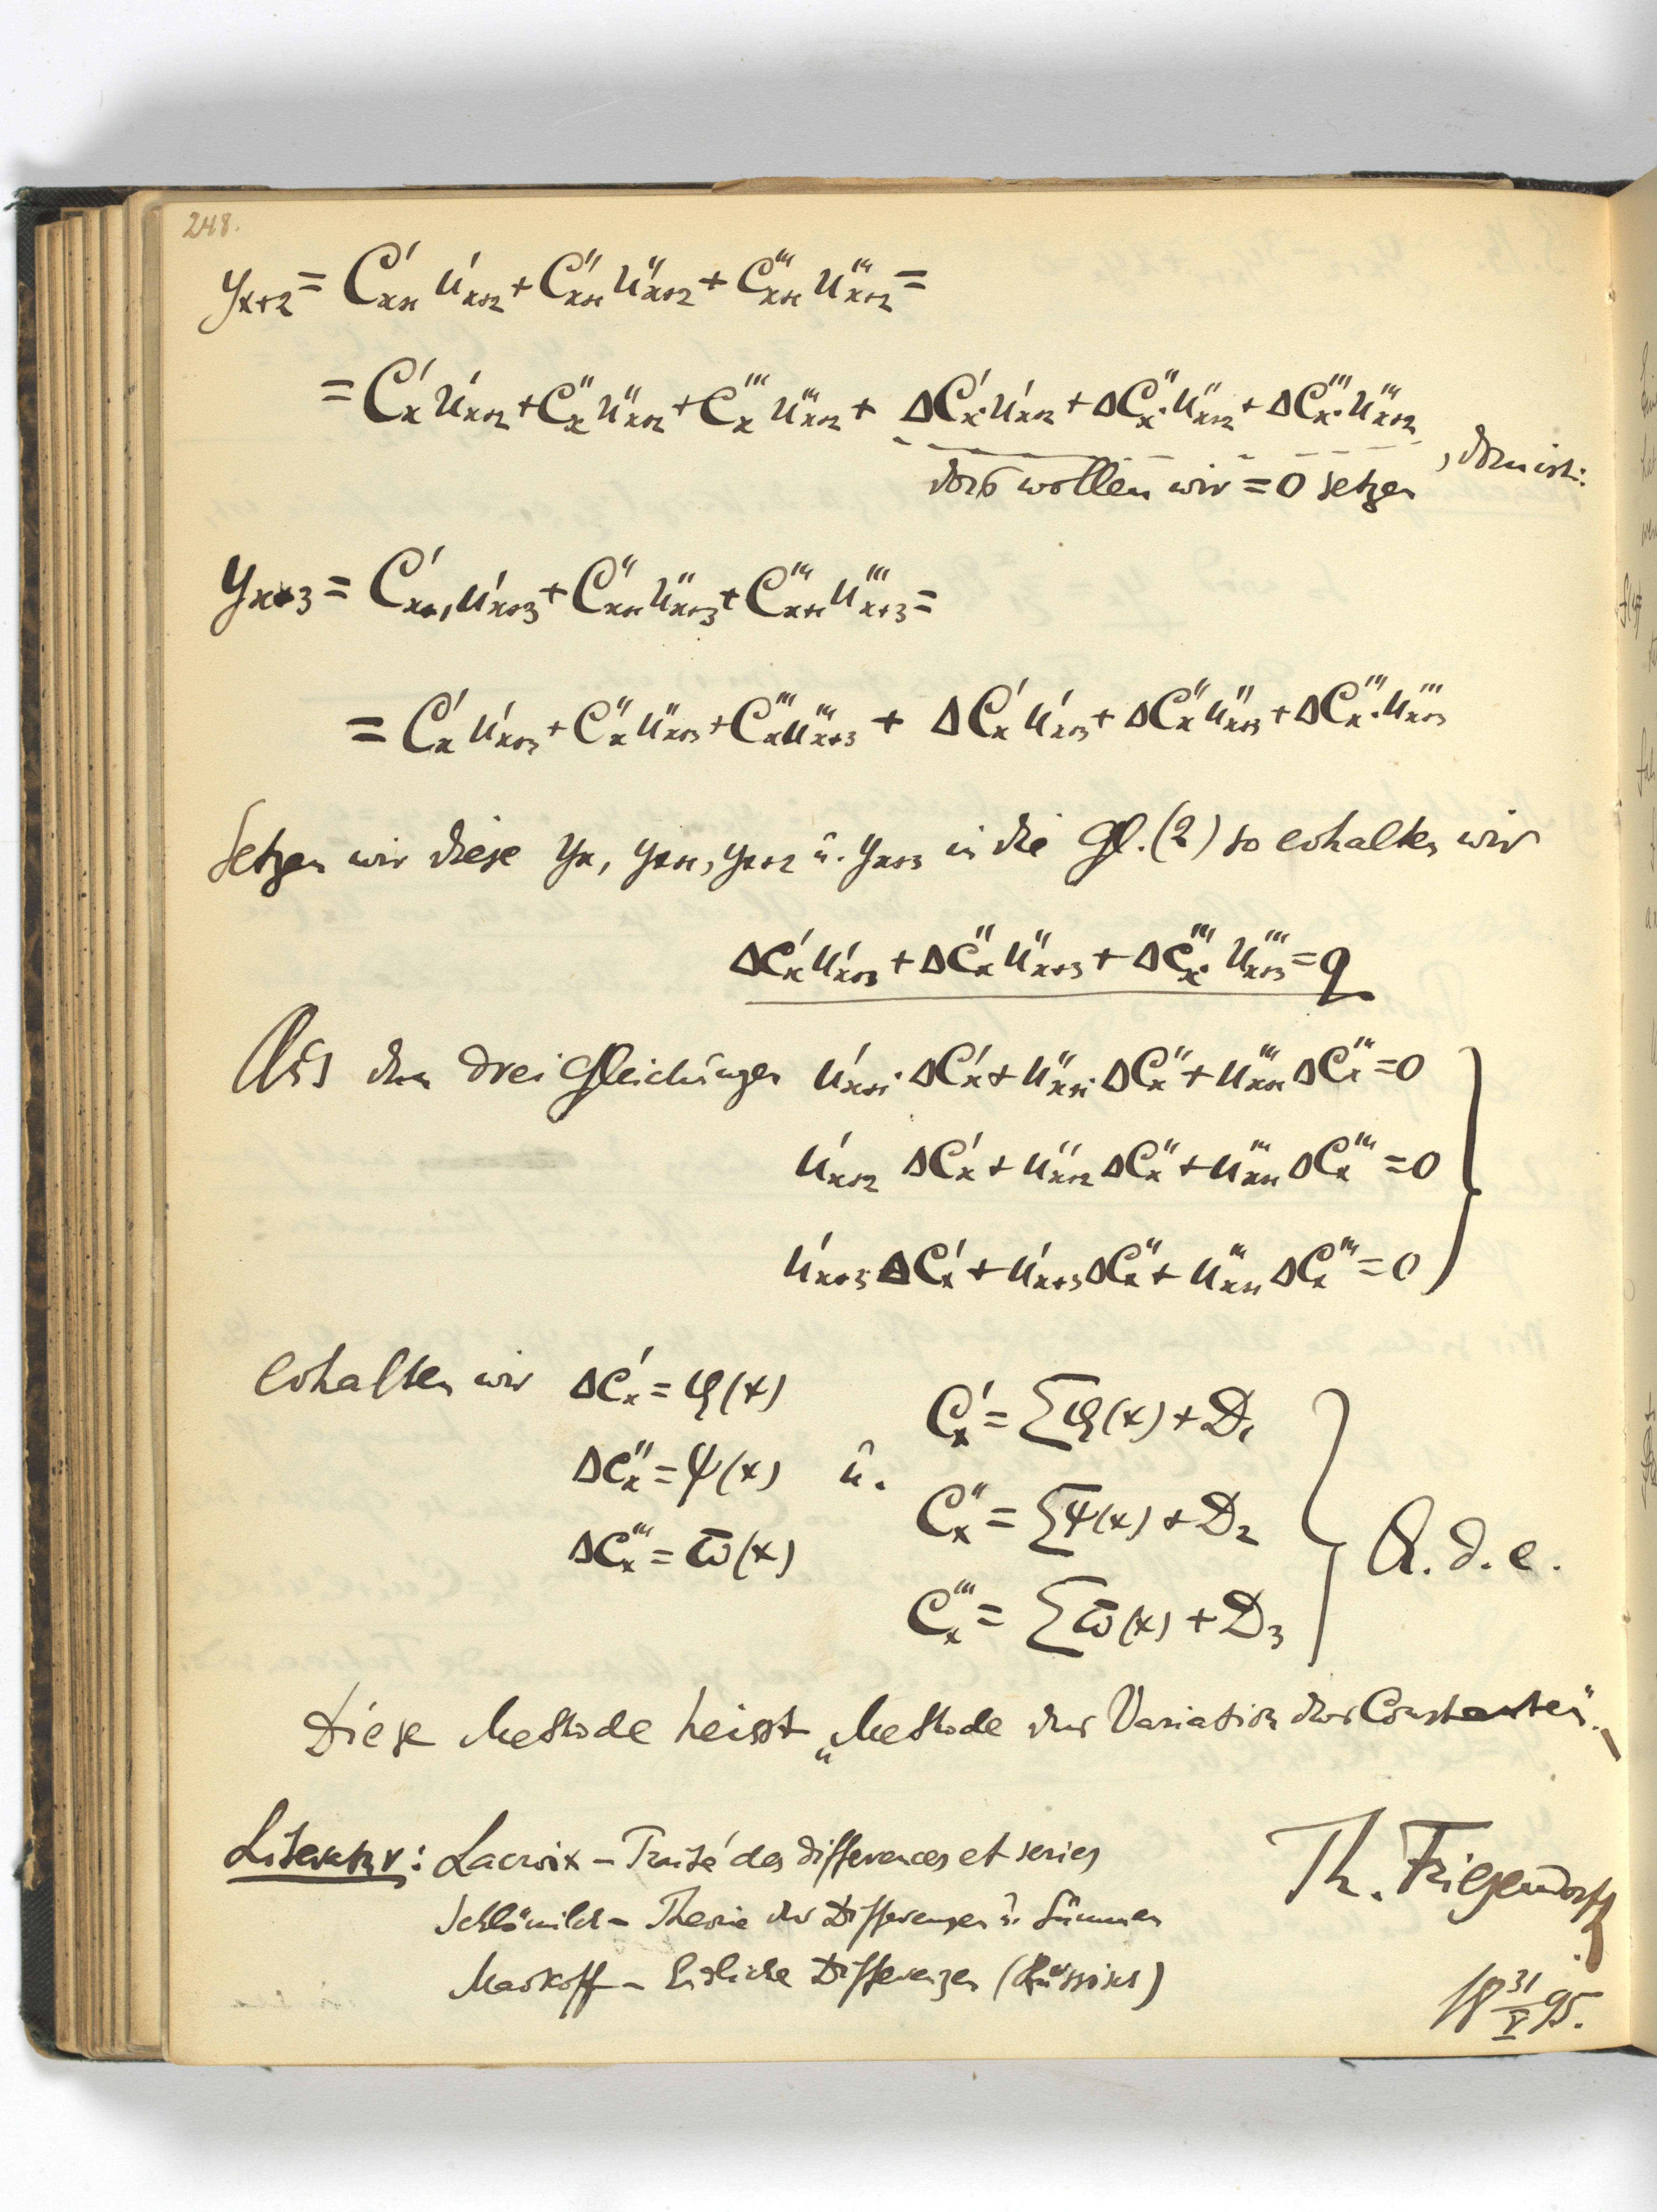 248.
y_{x+2} = C'_{x+1} u'_{x+2} + C''_{x+1} u''_{x+2} + C'''_{x+1} u'''_{x+2} =
= C'_x u'_{x+2} + C''_x u''_{x+2} + C'''_x u'''_{x+2} + ΔC'_x · u'_{x+2} + ΔC''_x · u''_{x+2} + ΔC'''_x · u'''_{x+2}
das wollen wir = 0 setzen , dann ist:
y_{x+3} = C'_{x+1} u'_{x+3} + C''_{x+1} u''_{x+3} + C'''_{x+1} u'''_{x+3} =
= C'_x u'_{x+3} + C''_x u''_{x+3} + C'''_x u'''_{x+3} + ΔC'_x u'_{x+3} + ΔC''_x u''_{x+3} + ΔC'''_x · u'''_{x+3}
Setzen wir diese y_x, y_{x+1}, y_{x+2} u. y_{x+3} in die Gl. (2) so erhalten wir
ΔC'_x u'_{x+3} + ΔC''_x u''_{x+3} + ΔC'''_x · u'''_{x+3} = q
Aus den drei Gleichungen u'_{x+1} · ΔC'_x + u''_{x+1} · ΔC''_x + u'''_{x+1} ΔC'''_x = 0
u'_{x+2} ΔC'_x + u''_{x+2} ΔC''_x + u'''_{x+1} ΔC'''_x = 0
u'_{x+3} ΔC'_x + u'_{x+3} ΔC''_x + u'''_{x+1} ΔC'''_x = 0
erhalten wir ΔC'_x = φ(x)
ΔC''_x = ψ(x) u.
ΔC'''_x = ϖ(x)
C'_x = Σφ(x) + D_1
C''_x = Σψ(x) + D_2
C'''_x = Σϖ(x) + D_3
Q. d. e.
Diese Methode heisst „Methode der Variation der Constanten". –
Literatur: Lacroix – Traité des differences et series
Schlömilch – Theorie der Differenzen u. Summen
Markoff – Endliche Differenzen (Russisch)
Th. Friesendorff
18 31/V 95.